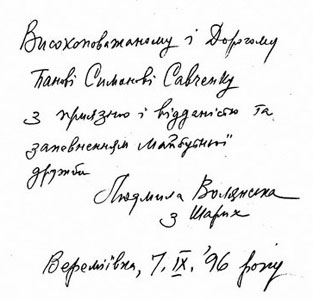 Високоповажаному і Дорогому
Панові Симонові Савченку
з приязню і відданістю та
запевненням майбутньої
дружби
Людмила Волянська
з Шарих
Веремїївка, 7. IX. '96 року